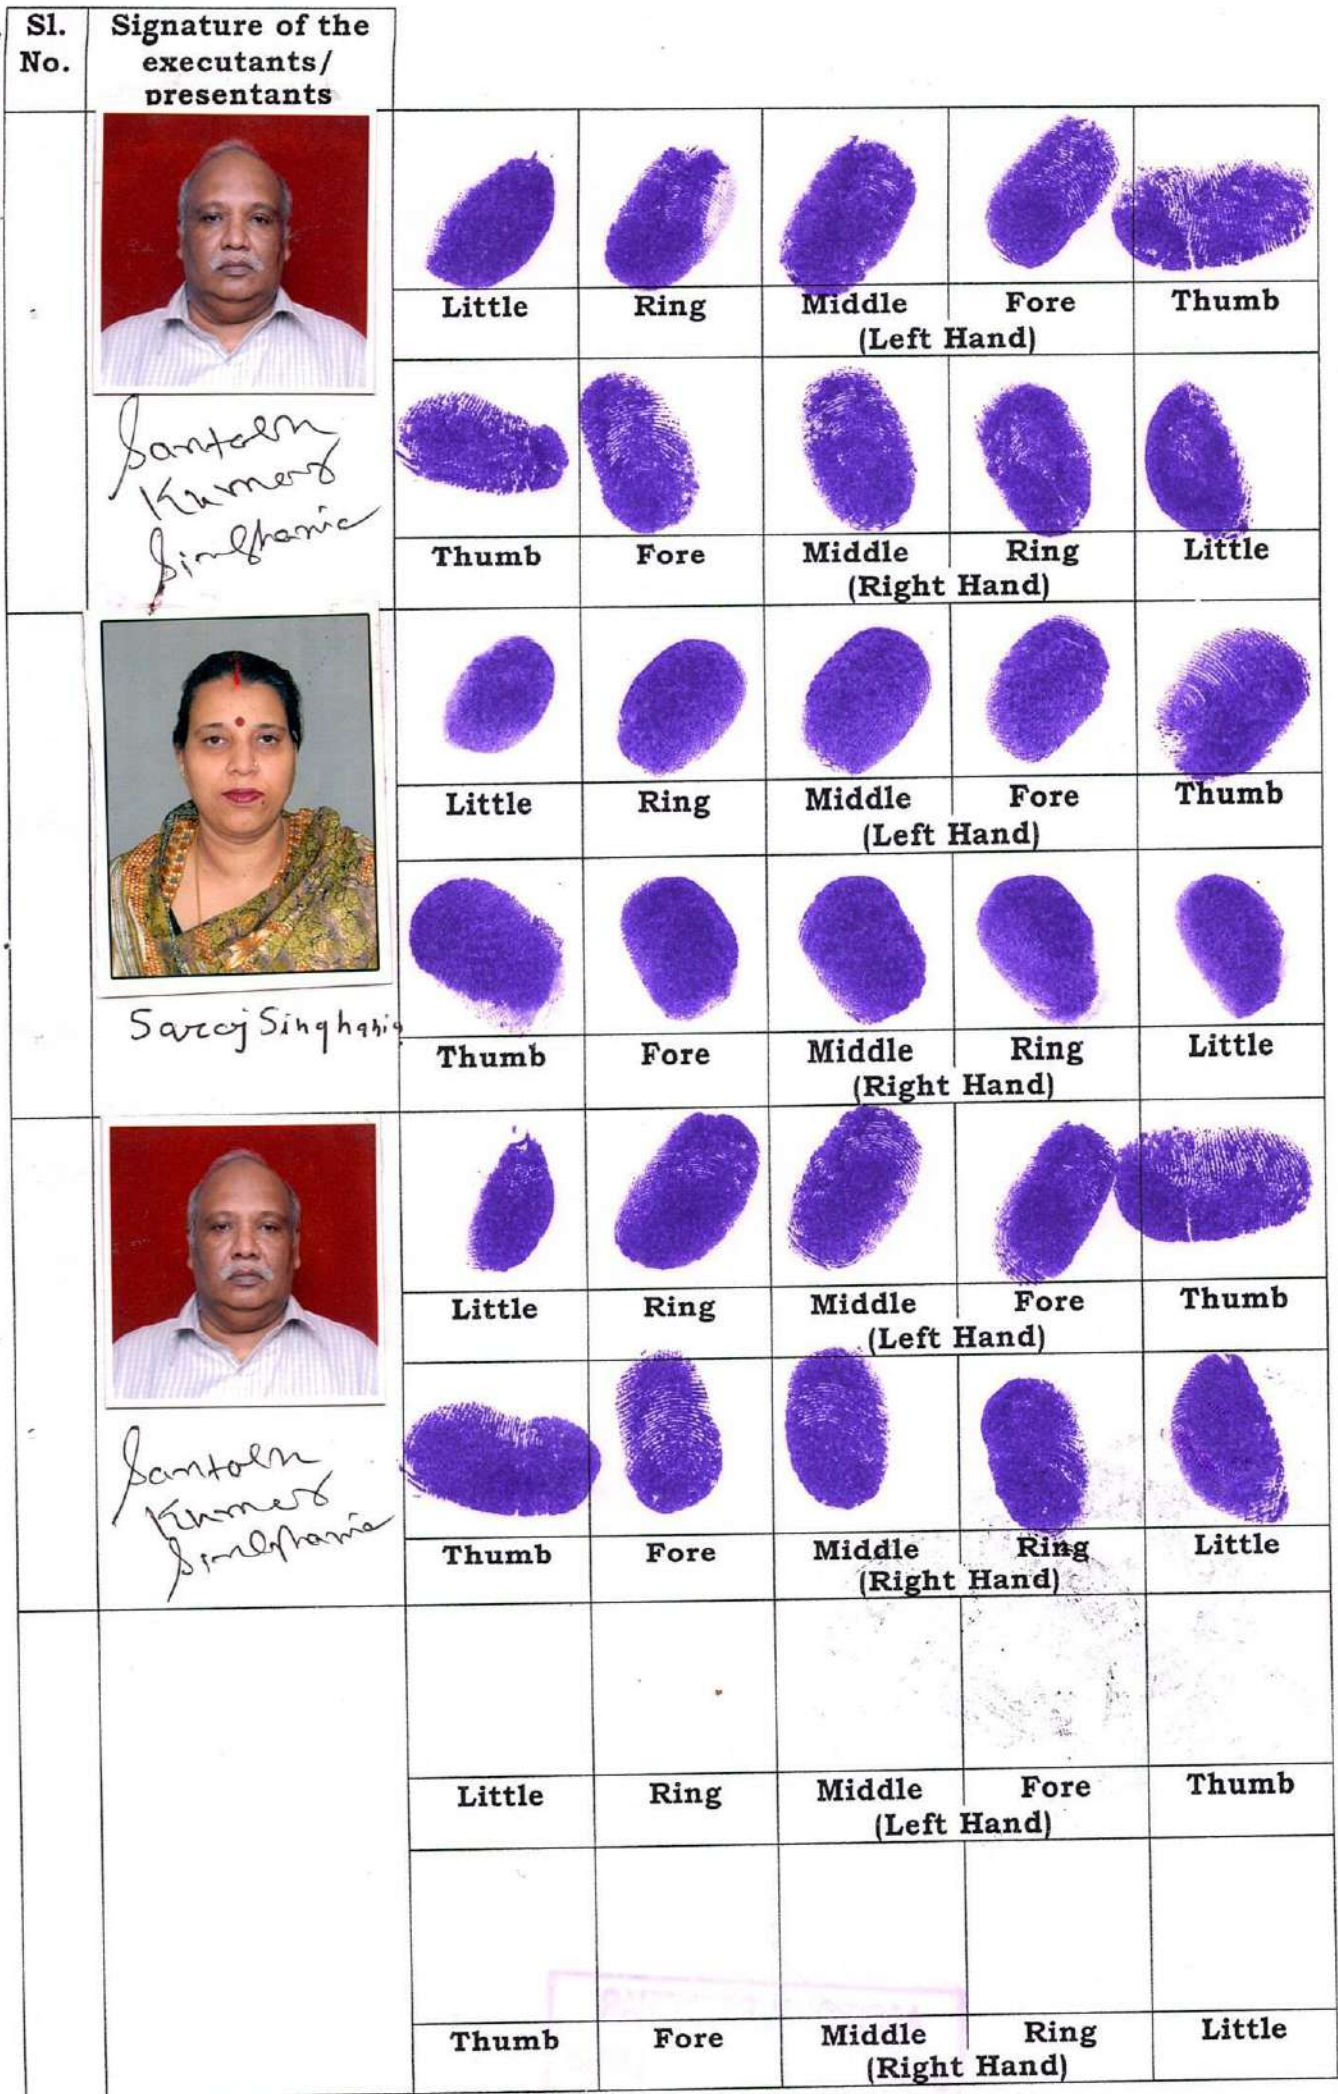 Sl. No.
Signature of the executants/ presentants
Little Ring Middle Fore Thumb
(Left Hand)
Santosh
Kumar
Singhania
Thumb Fore Middle Ring Little
(Right Hand)
Little Ring Middle Fore Thumb
(Left Hand)
Saroj Singhania
Thumb Fore Middle Ring Little
(Right Hand)
Little Ring Middle Fore Thumb
(Left Hand)
Santosh
Kumar
Singhania
Thumb Fore Middle Ring Little
(Right Hand)
Little Ring Middle Fore Thumb
(Left Hand)
Thumb Fore Middle Ring Little
(Right Hand)